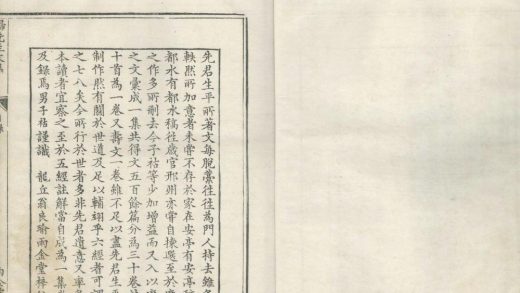 先君生平所著文每脫藁往往為門人持去雖多
軼然所加意者未嘗不存於家在安亭有安亭
都水有都水稿往歲官邢州亦嘗自揀選至於
之作多所刪去今子祜等少加增益而又入以
之文彙成一集共得文五百餘篇分為三十卷
十首為一卷又壽文一卷雖不足以盡先君生平
制作然有關於世道及足以輔翊乎六經者可謂
之七八矣今所行於世者多非先君遺意又率
本讀者宜察之至於五經註解當自成為一集
及錄焉男子祜謹識 龍丘翁良瑜雨金堂梓
先生文集